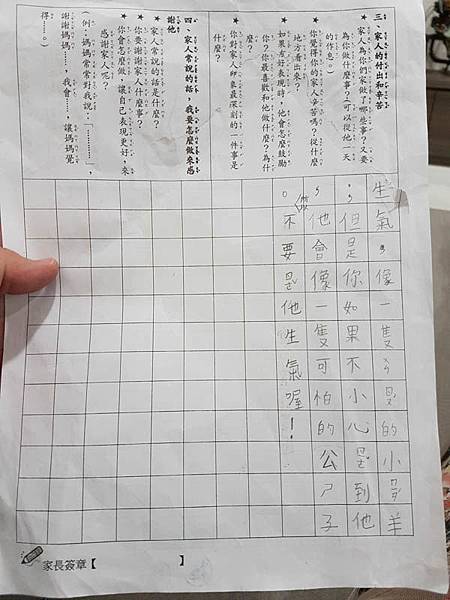 三、家人的付出和辛苦
★家人為你們家做了哪些事？又要
為你做什麼事？（可以從他一天
的作息。）
★你覺得你的家人辛苦嗎？從什麼
地方看出來？
★如果有好表現時，他會怎麼鼓勵
你？你最喜歡和他做什麼？為什
麼？
★你對家人印象最深刻的一件事是
什麼？
四、家人常說的話，我要怎麼做來感
謝他
★家人常說的話是什麼？
★你要謝謝家人什麼事？
★你會怎麼做，讓自己表現更好，來
感謝家人呢？
（例：媽媽常常對我說：「………」，
謝謝媽媽……，我會……，讓媽媽覺
得……。）
生氣，像一隻的小羊
，但是你如果不小心是到他
，他會像一隻可怕的公ㄕ子
。所以不要是他生氣喔！
家長簽章【　　　】